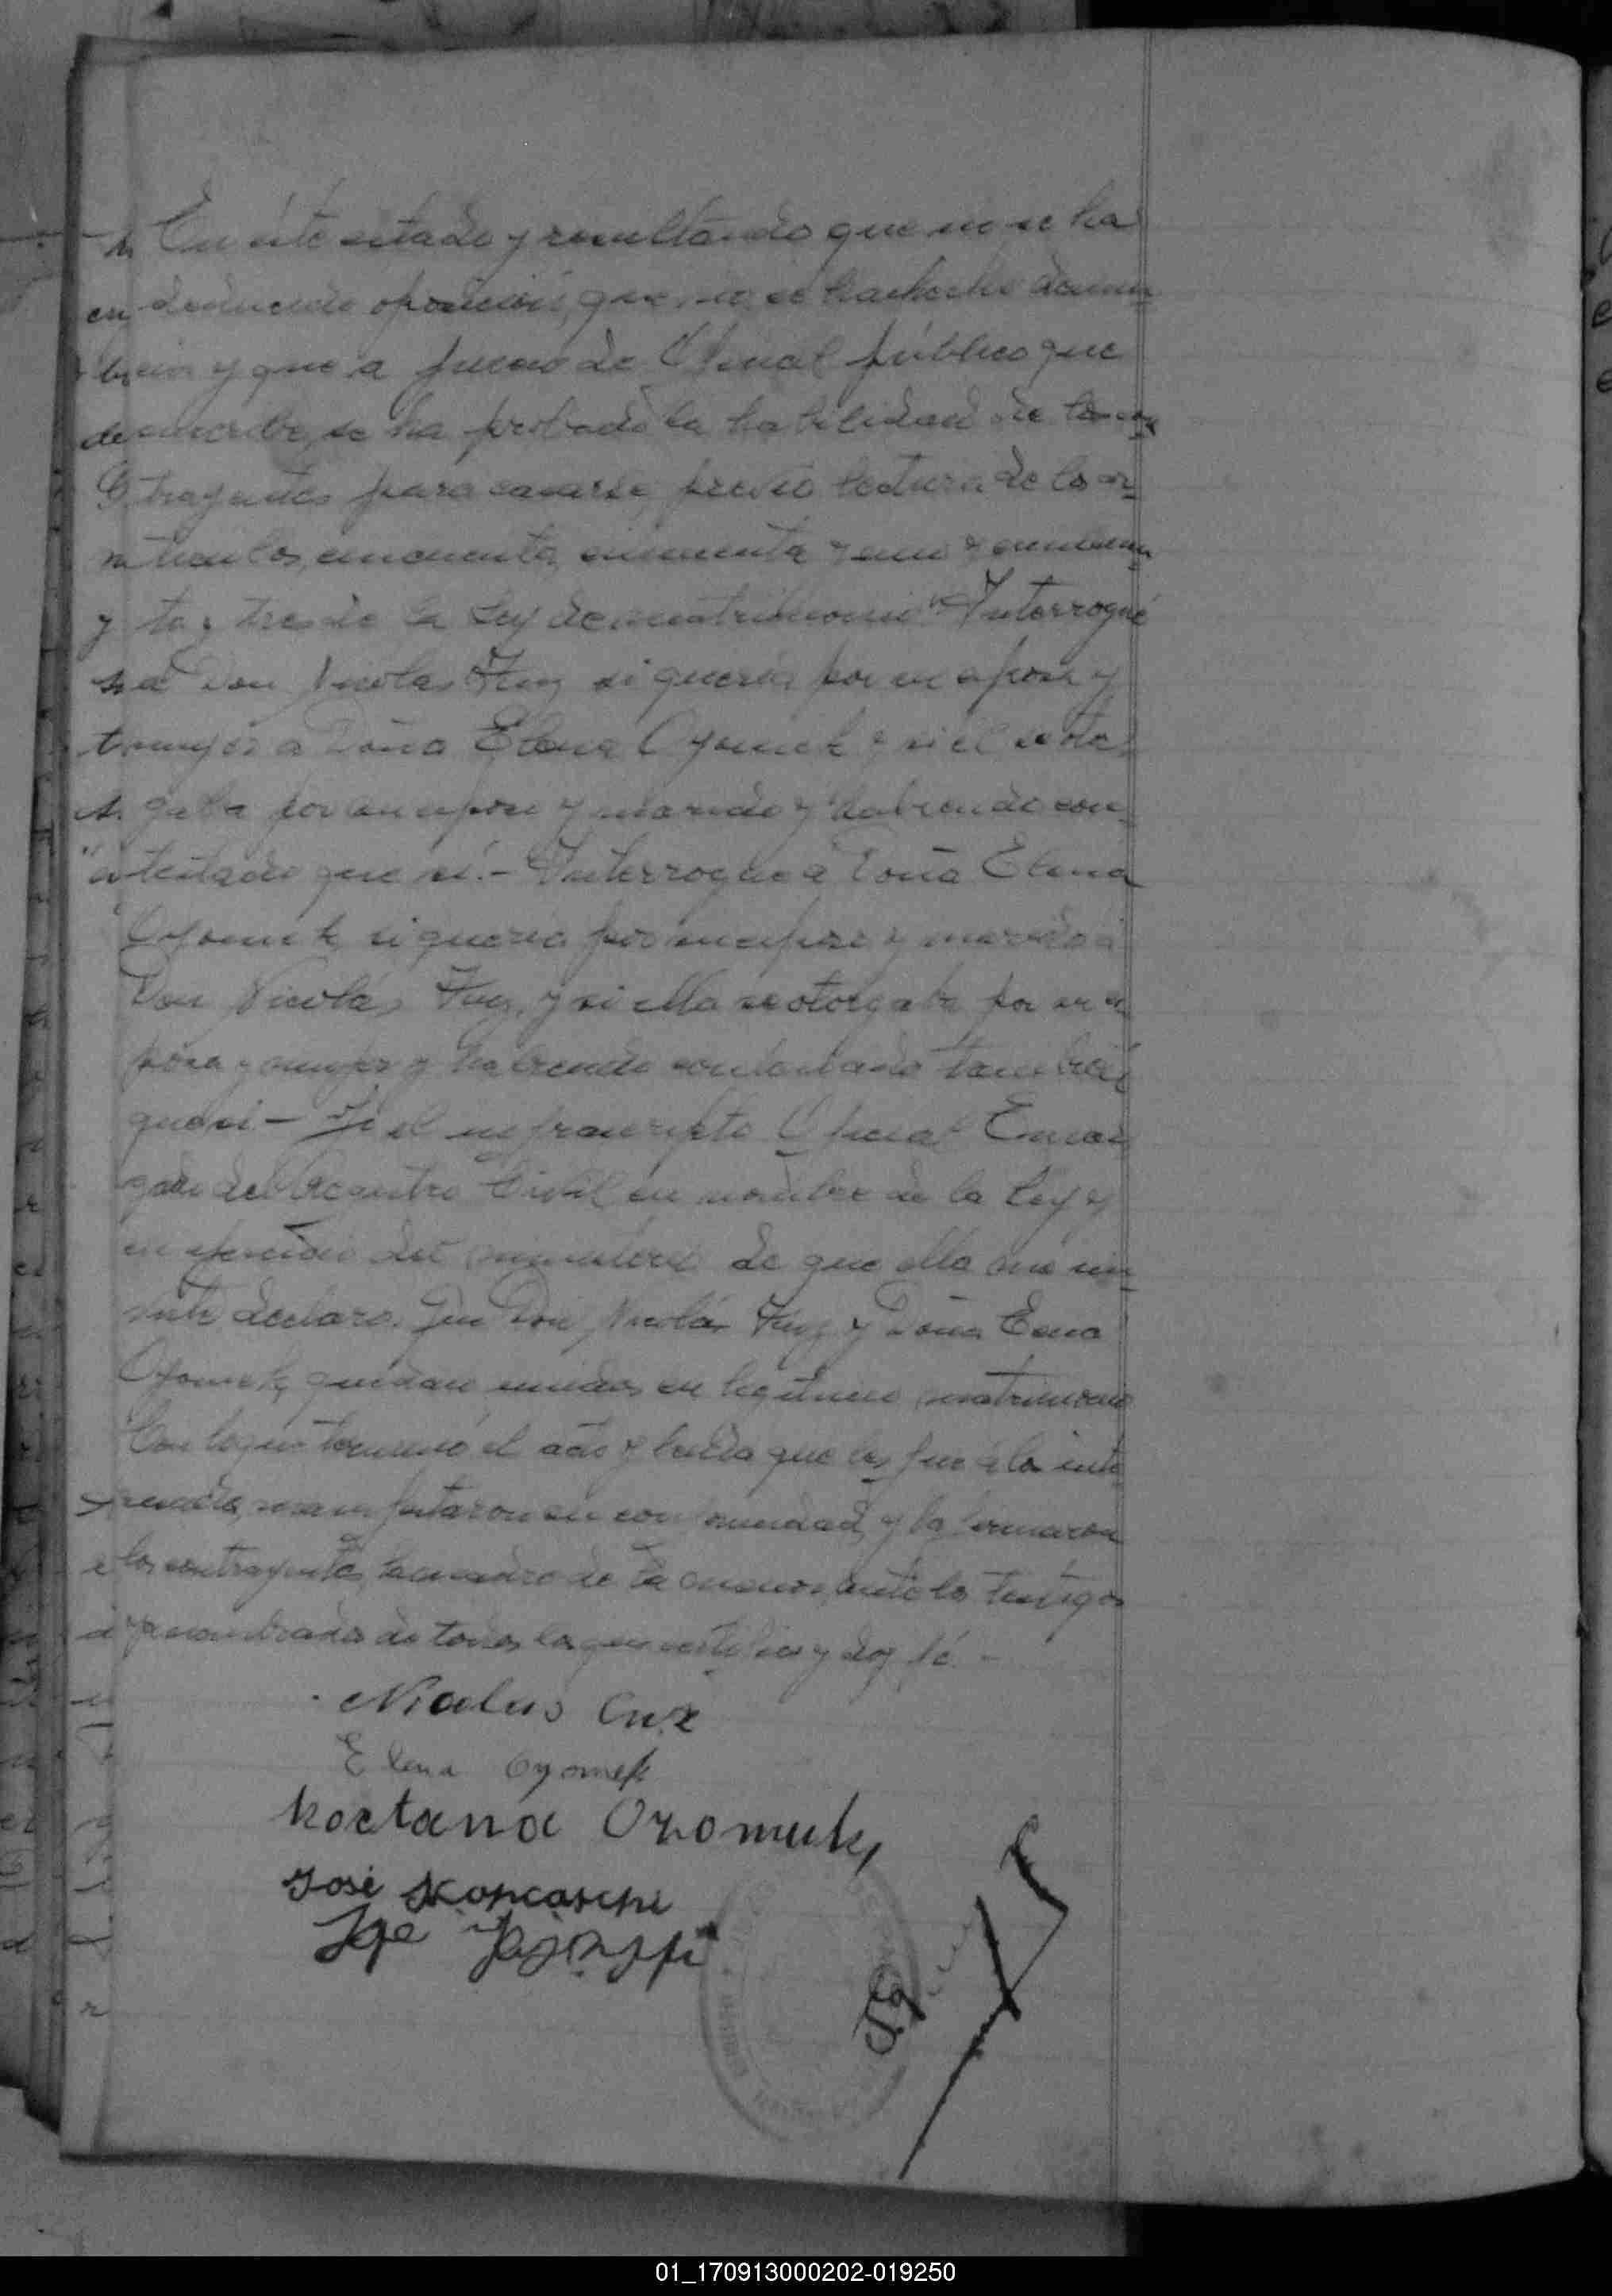 En éste estado y resultando que no se ha
deducido oposición, que no se ha hecho denun
cia y que a juicio de Oficial público que
suscribe, se ha probado la habilidad de los con
trayentes para casarse, previo lectura de los ar
tículos, cincuenta, cincuenta y uno y cincuen
ta y tres de la Ley de matrimonio "Interrogué
a Don Nicolás si queria por su esposa y
mujer a Doña Elena Oyomek y si él se otor
gaba por su esposo y marido y habiendo con
testado que sí.- Interrogué a Doña Elena
Oyomek si queria por su esposo y marido a
Don Nicolás y si ella se otorgaba por su es
posa y mujer y habiendo contestado también
que si - Yo el infranscripto Oficial Encar
gado del Registro Civil en nombre de la Ley y
en ejercicio del ministerio de que ella me in
viste declaro. Que Don Nicolás y Doña Elena
Oyomek, quedan unidos en legítimo matrimonio
Con lo que terminó el acto y leida que les fué a los inte
resados, manifestaron su conformidad, y la firmaron
los contrayentes, la madre de la menor, ante los testigos
ya nombrados de todo lo que certifico y doy fé -
Elena Oyomek
José
01_170913000202-019250